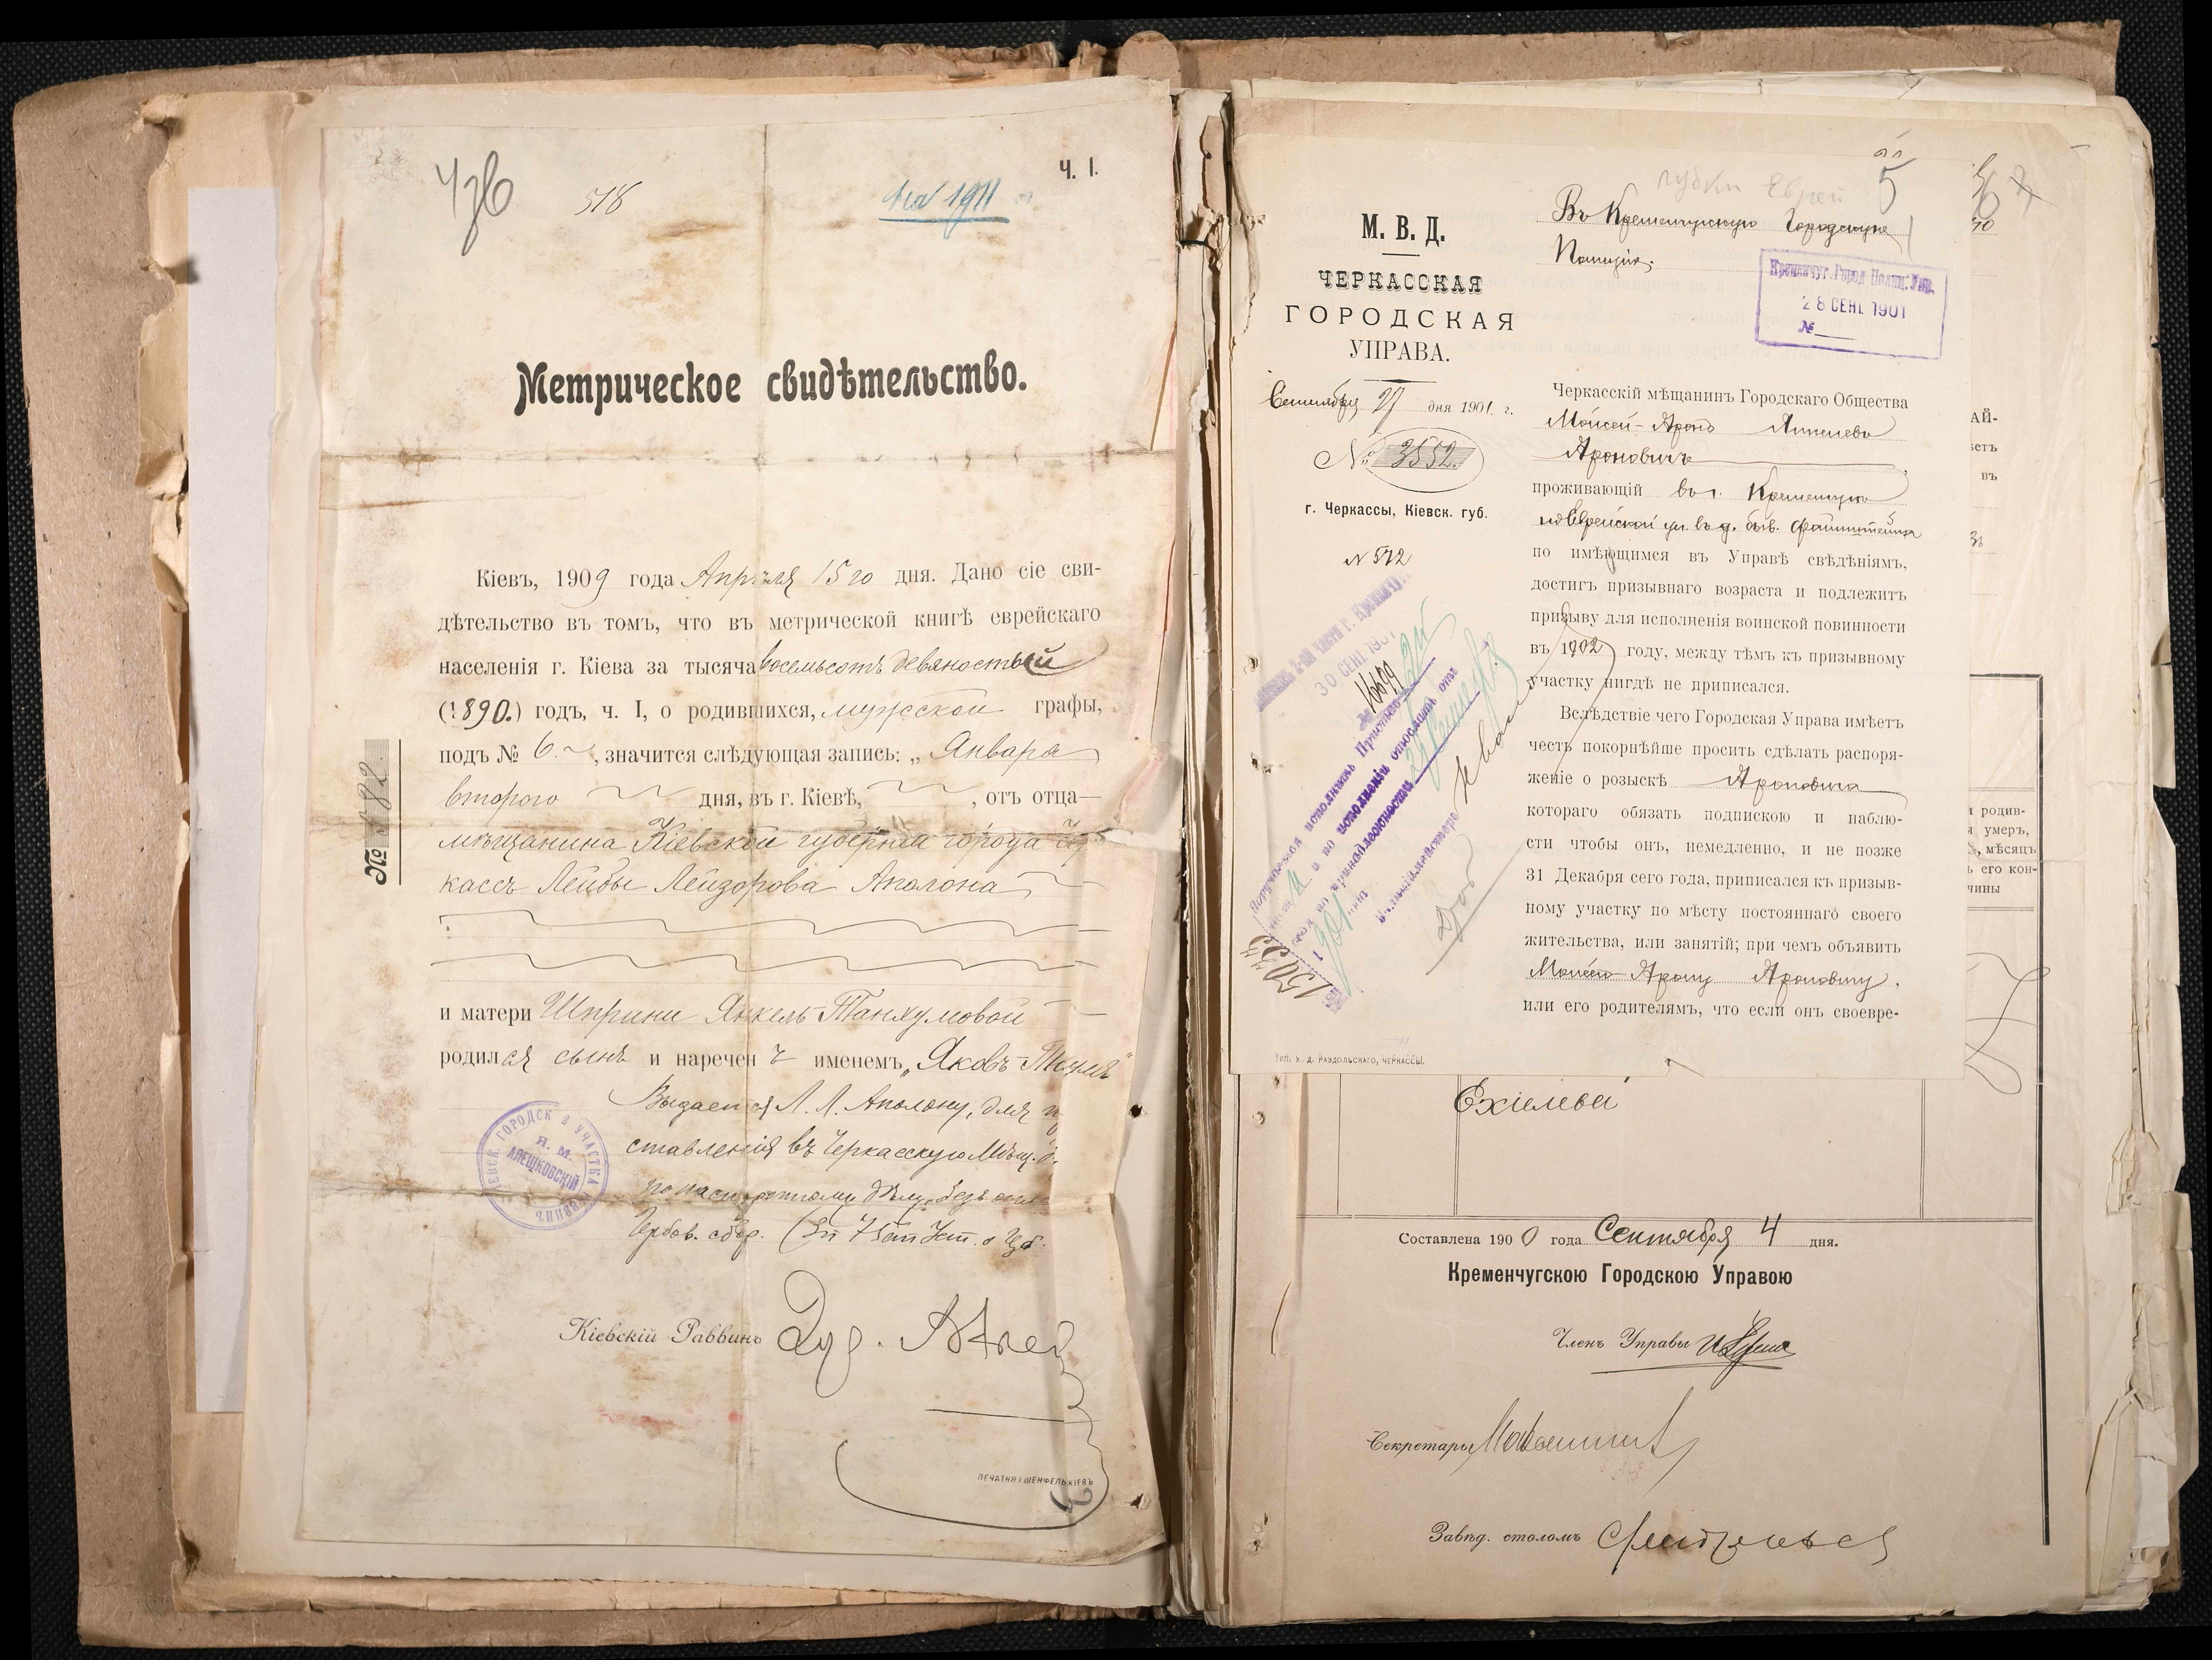 436
518
на 1911
Ч. I.
Метрическое свидѣтельство.
№ 182
Кіевъ, 1909 года Апрѣля 15 го дня. Дано сіе сви-
дѣтельство въ томъ, что въ метрической книгѣ еврейскаго
населенія г. Кіева за тысяча восемьсотъ девяностый
(1890.) годъ, ч. I, о родившихся, мужской графы,
подъ № 6. , значится слѣдующая запись: „ Января
второго дня, въ г. Кіевѣ, , отъ отца—
мѣщанина Кіевской губерніи города Чер
кассъ Лейбы Лейзорова Аполона
и матери Шприни Янкель-Танхумовой
родился сынъ и нареченъ именемъ „Яковъ-
Выдается Л. Л. Аполону, для п
ставленія въ Черкасскую Мѣщ.
дѣлу, безъ
Гербов. сбор. (
КІЕВСК. ГОРОДСК 2 УЧАСТКА РАВВИНЪ
Я. М.
АЛЕШКОВСКІЙ
Кіевскій Раввинъ
ПЕЧАТНЯ І. ШЕНФЕЛЬ КІЕВЪ
3
5
еврей
М. В. Д.
ЧЕРКАССКАЯ
ГОРОДСКАЯ
УПРАВА.
Сентября 27 дня 1901. г.
№ 3552.
г. Черкассы, Кіевск. губ.
N 572
Въ Кременчугскую Городскую
Полицію.
Кременчуг. Город Полиц. Упр.
28 СЕНТ. 1901
№
Черкасскій мѣщанинъ Городскаго Общества
Мойсей-Аронъ Янкелевъ
Ароновичъ
проживающій въ г. Кременчугѣ
по Еврейской ул. въ д. быв.
по имѣющимся въ Управѣ свѣдѣніямъ,
достигъ призывнаго возраста и подлежитъ
призыву для исполненія воинской повинности
въ 1902 году, между тѣмъ къ призывному
участку нигдѣ не приписался.
Вслѣдствіе чего Городская Управа имѣетъ
честь покорнѣйше просить сдѣлать распоря-
женіе о розыскѣ Ароновича
котораго обязать подпискою и наблю-
сти чтобы онъ, немедленно, и не позже
31 Декабря сего года, приписался къ призыв-
ному участку по мѣсту постояннаго своего
жительства, или занятій; при чемъ объявить
Мойсею-Арону Ароновичу,
или его родителямъ, что если онъ своевре-
30 СЕНТ. 1901
№ 16699
Поручается исполнить Приставу
и по исполненіи отослать
по принадлежности
1901
Полиціймейстеръ
№ 15033
Тип. Х. Д. РАЗДОЛЬСКАГО, ЧЕРКАССЫ.
АЙ-
ветъ
въ
родив-
умеръ,
мѣсяцъ
его кон-
чины
Ехіелевъ
Составлена 1900 года Сентября 4 дня.
Кременчугскою Городскою Управою
Членъ Управы
Секретарь
Завѣд. столомъ